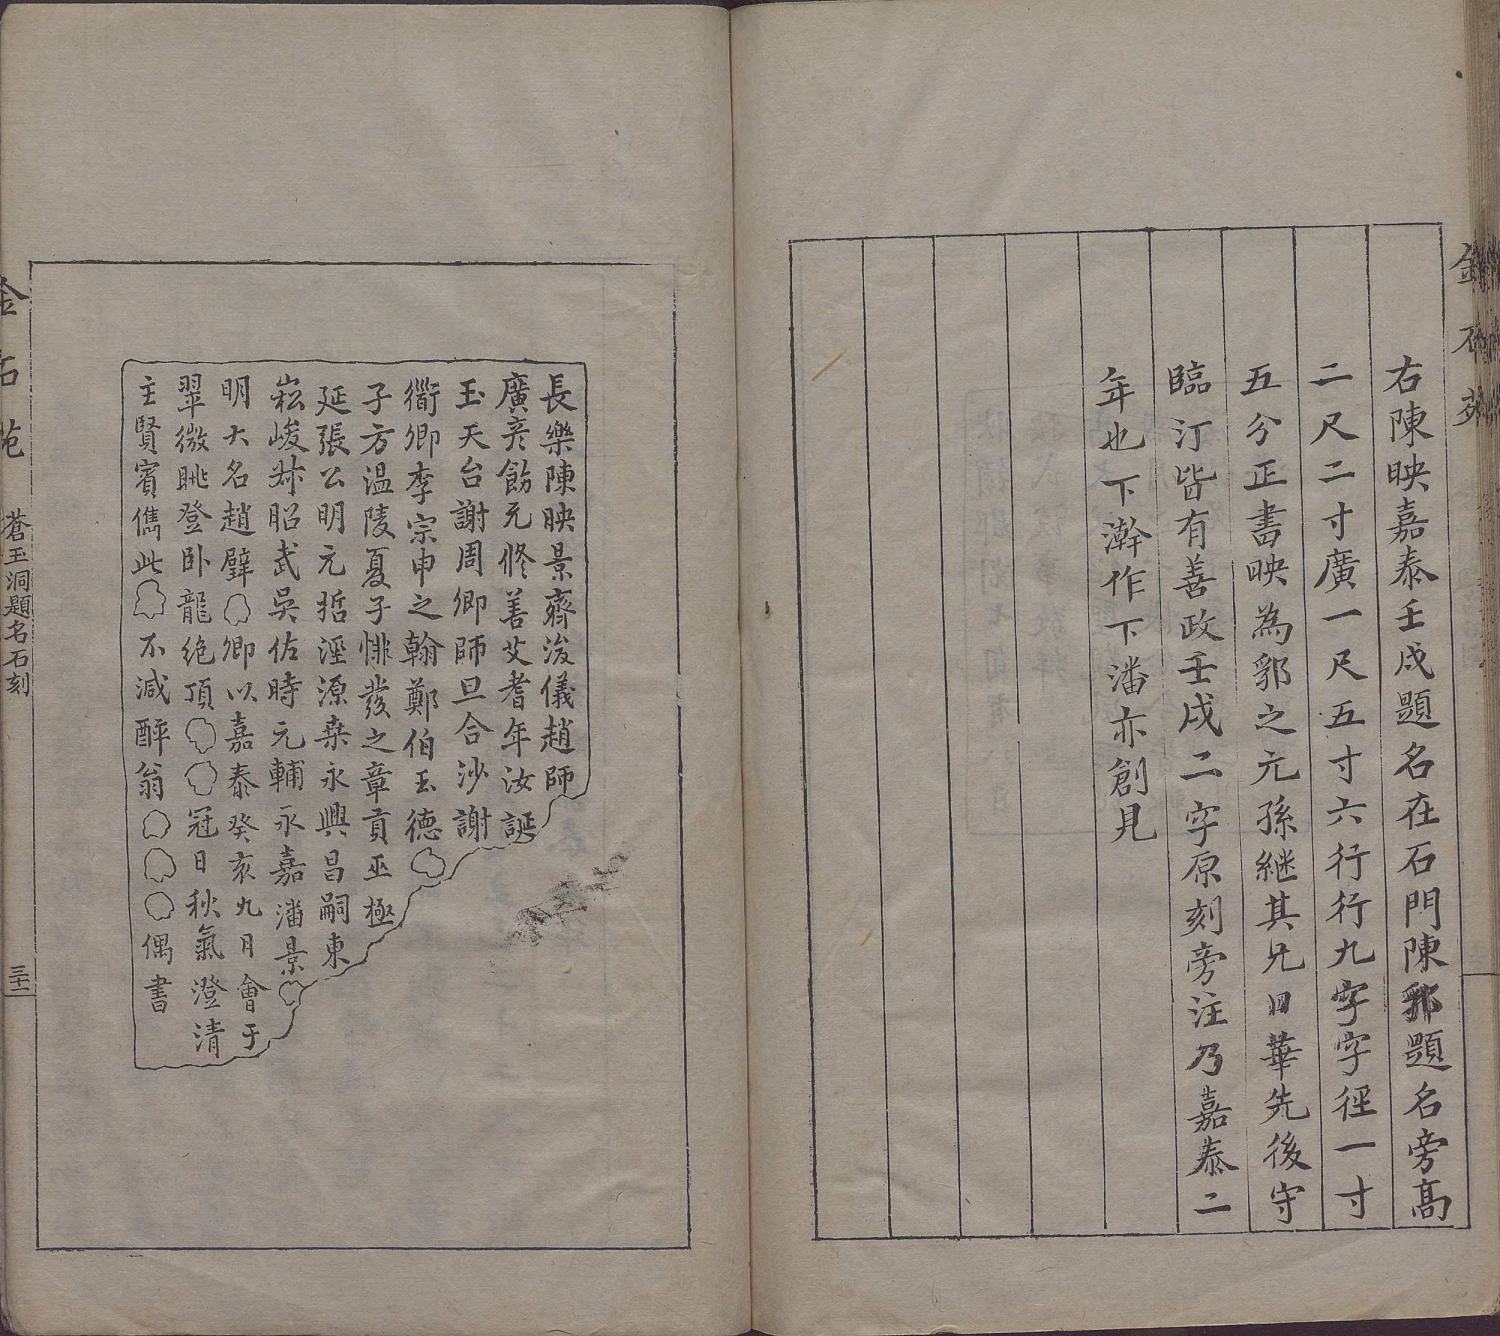 金石苑
右陳映嘉泰壬戌題名在石門陳邪題名旁高
二尺二寸廣一尺五寸六行行九字字徑一寸
五分正書映為郛之元孫繼其兄日華先後守
臨汀皆有善政壬戌二字原刻旁注乃嘉泰二
年也卞澣作卞潘亦創見
長樂陳映景齊浚儀趙師
廣彦飭元修善艾耆年汝誕
玉天台謝周卿師旦合沙謝
衢卿李宗申之翰鄭伯玉德
子方溫陵夏子悱發之章貢巫極
延張公明元哲溼源桒永興昌嗣東
崧峻叔昭武吳佐時元輔永嘉潘景
明大名趙璧卿以嘉泰癸亥九月會于
翠微眺登卧龍絶頂冠日秋氣澄清
主賢賓儁此不減醉翁偶書
金石苑
蒼玉洞題名石刻
三十一